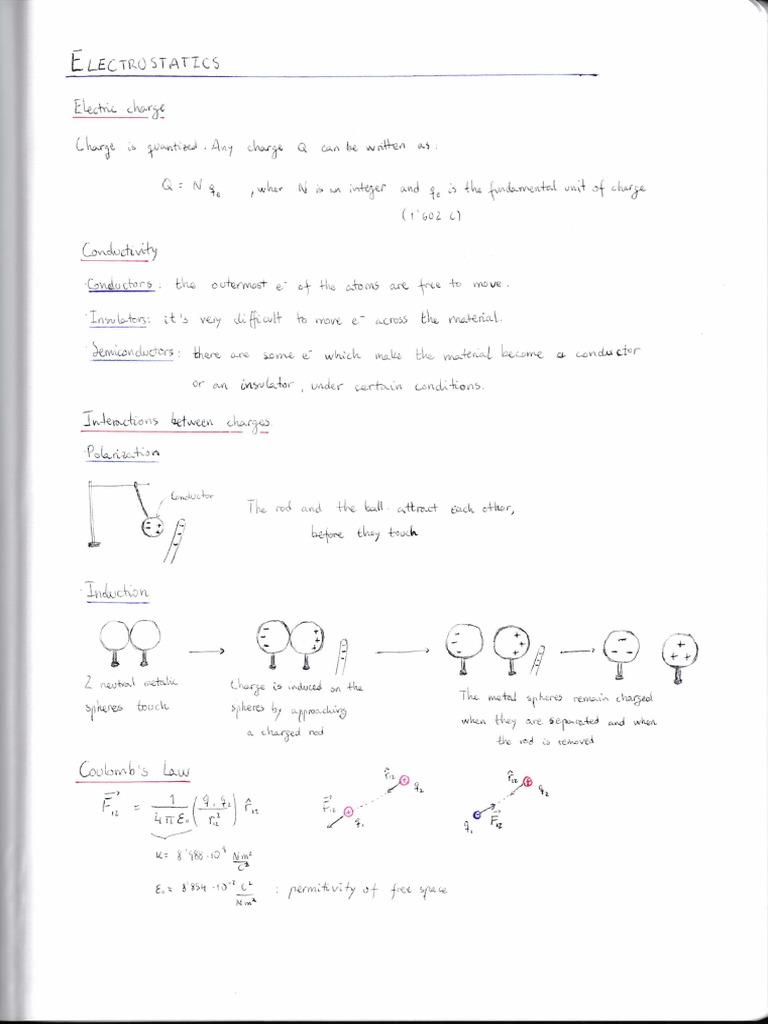 ELECTROSTATICS
Electric charge
Charge is quantized. Any charge Q can be written as:
Q = N qₑ , wher N is an integer and qₑ is the fundamental unit of charge
(1'602 C)
Conductivity
· Conductors: the outermost e⁻ of the atoms are free to move.
· Insulators: it's very difficult to move e⁻ across the material.
· Semiconductors: there are some e⁻ which make the material become a conductor
or an insulator, under certain conditions.
Interactions between charges
· Polarization
Conductor
The rod and the ball attract each other,
before they touch
· Induction
2 neutral metalic
spheres touch
Charge is induced on the
spheres by approaching
a charged rod
The metal spheres remain charged
when they are separated and when
the rod is removed
Coulomb's Law
F⃗₁₂ = 1/(4πε₀) (q₁ q₂ / r₁₂²) r̂₁₂
r̂₁₂ q₂ F⃗₁₂ q₁
r̂₁₂ q₂ q₁ F⃗₁₂
K = 8'988·10⁹ Nm²/C²
ε₀ = 8'854·10⁻¹² C²/Nm² : permitivity of free space